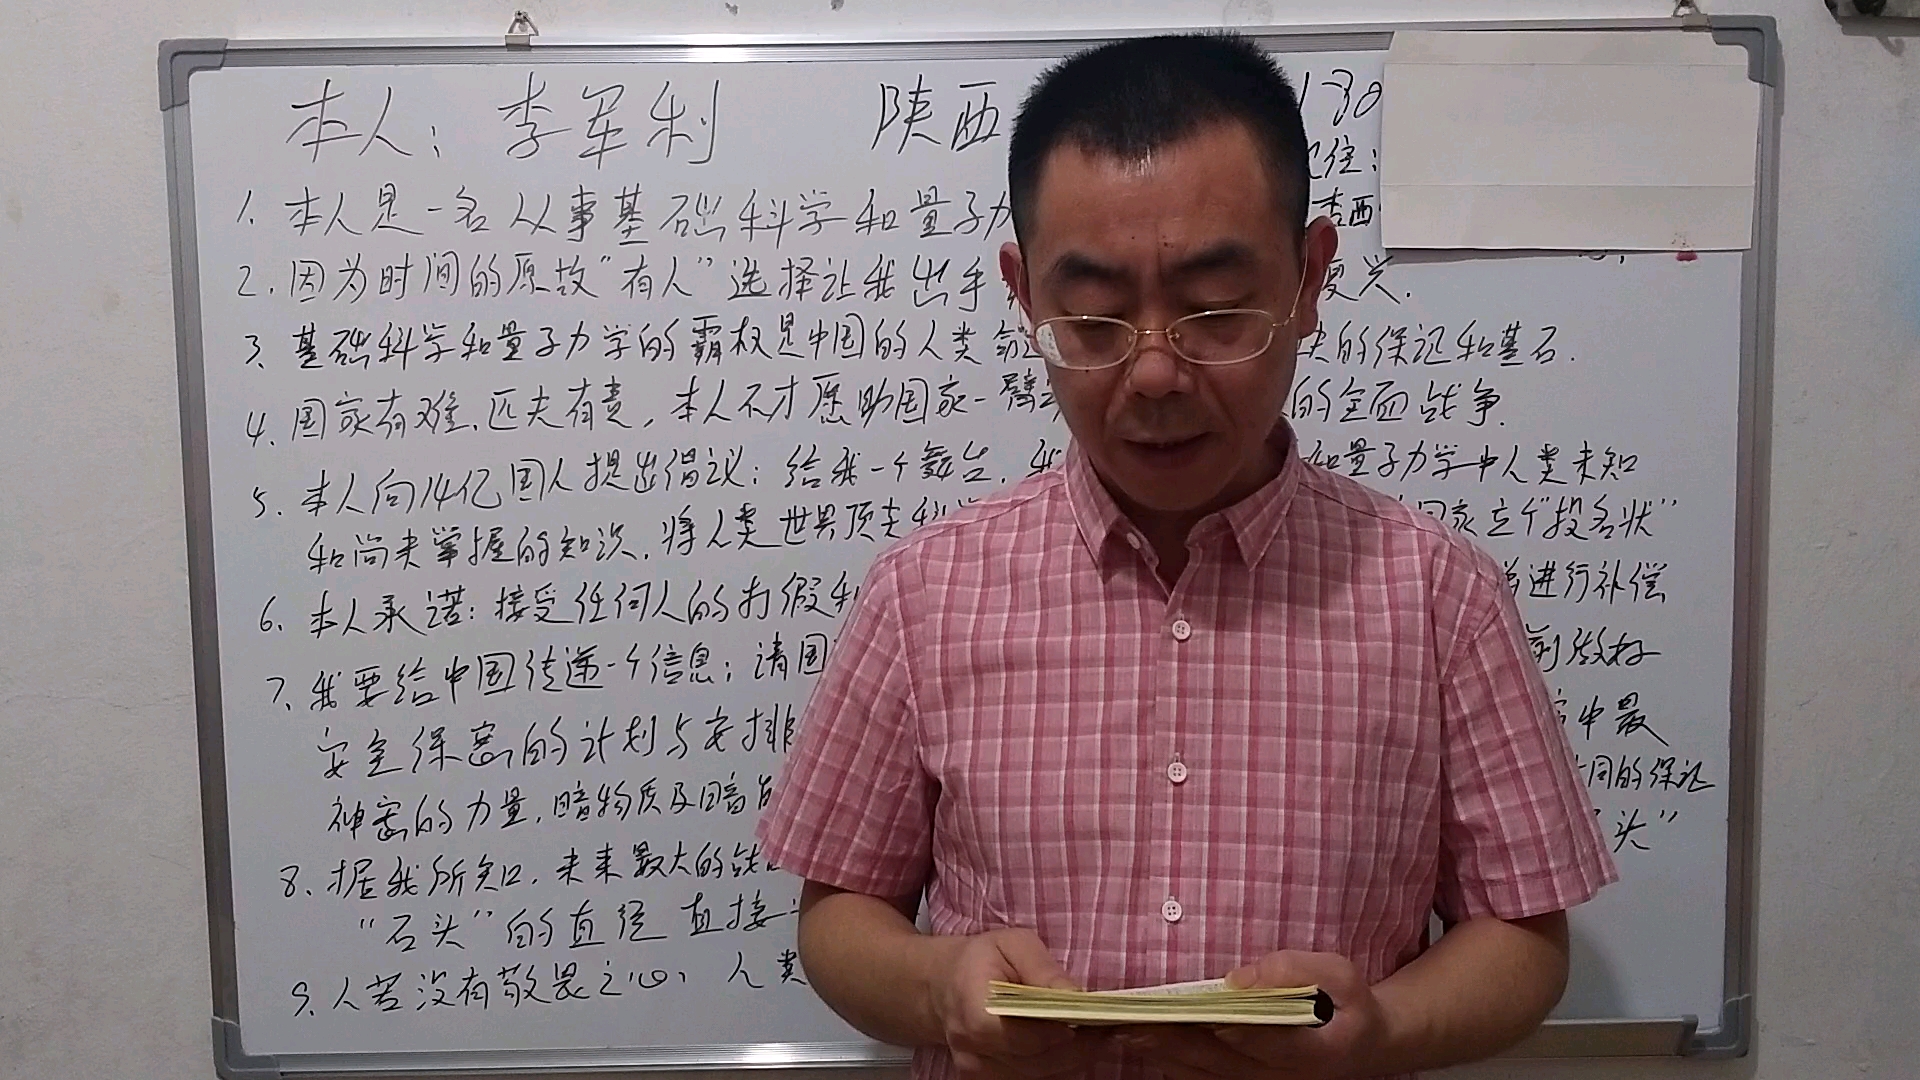 本人：李军利 陕西 130
住：
1、本人是一名从事基础科学和量子力 李西
2、因为时间的原故“有人”选择让我出手 复兴.
3、基础科学和量子力学的霸权是中国的人类命 的保证和基石.
4、国家有难、匹夫有责，本人不才愿助国家一臂 的全面战争.
5、本人向14亿国人提出倡议：给我一个舞台， 和量子力学中人类未知
和尚未掌握的知识，将人类世界顶尖科 国家立个“投名状”
6、本人承诺：接受任何人的打假和 进行补偿
7、我要给中国传递一个信息；请国 前做好
安全保密的计划与安排 中最
神密的力量，暗物质及暗能 同的保证
8、据我所知，未来最大的战 石头”
“石头”的直径直接
9、人若没有敬畏之心，人类